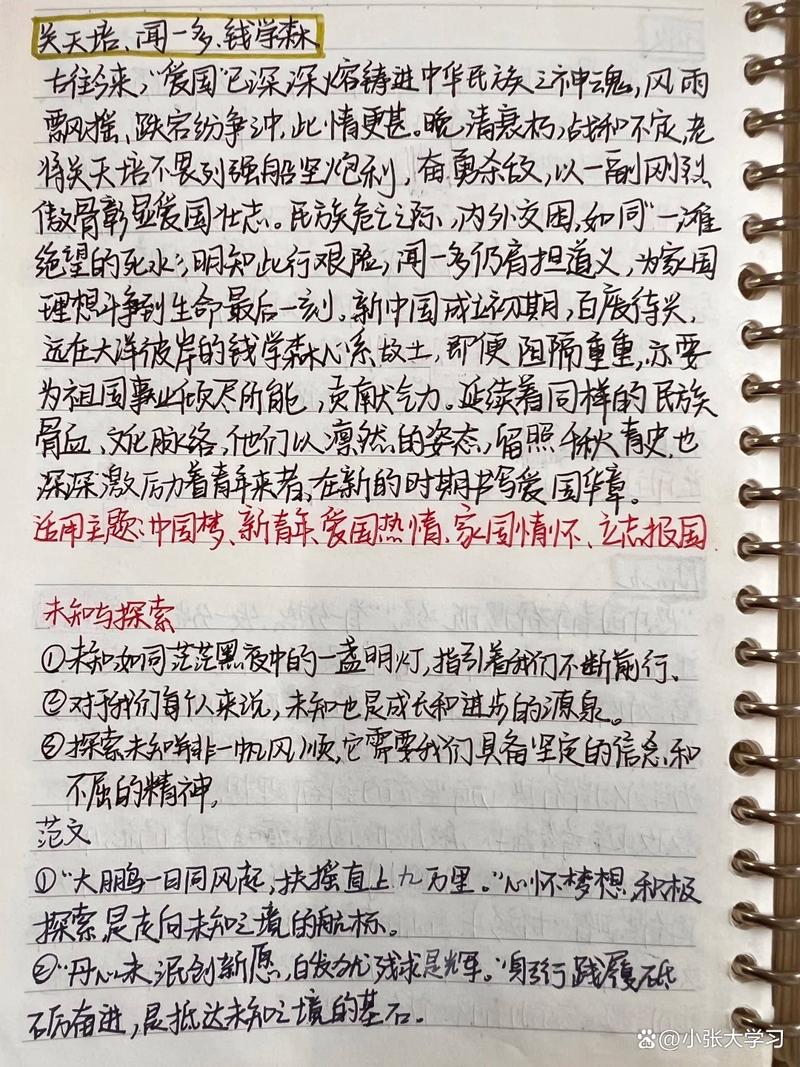 关天培、闻一多、钱学森
古往今来，“爱国”已深深熔铸进中华民族之神魂，风雨
飘摇、跌宕纷争冲，此情更甚。晚清衰朽，战和不定，老
将关天培不畏列强船坚炮利，奋勇杀敌，以一副刚烈
傲骨彰显爱国壮志。民族危亡之际，内外交困，如同“一滩
绝望的死水”，明知此行艰险，闻一多仍肩担道义，为家国
理想斗争到生命最后一刻。新中国成立初期，百废待兴，
远在大洋彼岸的钱学森心系故土，即便阻隔重重，亦要
为祖国事业倾尽所能，贡献气力。延续着同样的民族
骨血、文化脉络，他们以凛然的姿态，留照千秋青史，也
深深激励着青年来者，在新的时期书写爱国华章。
适用主题：中国梦、新青年、爱国热情、家国情怀、立志报国
未知与探索
①未知如同茫茫黑夜中的一盏明灯，指引着我们不断前行、
②对于我们每个人来说，未知也是成长和进步的源泉。
③探索未知并非一帆风顺，它需要我们具备坚定的信念和
不屈的精神，
范文
①“大鹏一日同风起，扶摇直上九万里。”心怀梦想，积极
探索是走向未知之境的航标。
②“丹心未泯创新愿，白发犹残求是辉。”身行践履，砥
砺奋进，是抵达未知之境的基石。
@小张大学习